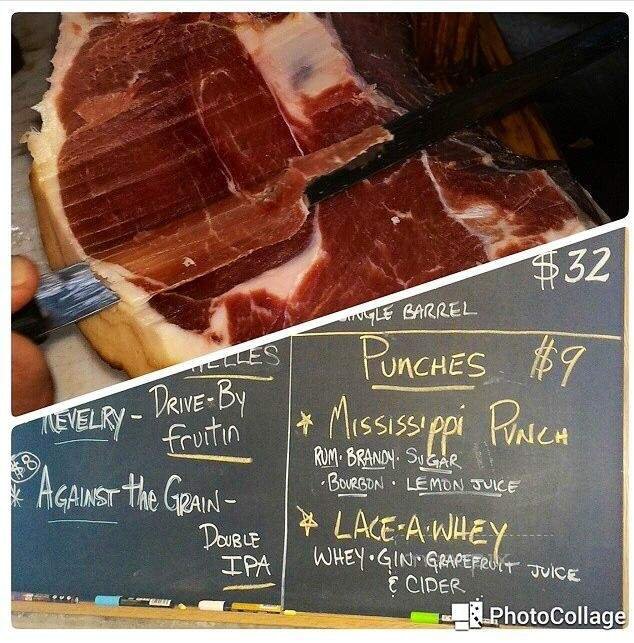 $32
SINGLE BARREL
HELLES
REVELRY - DRIVE-BY
fruitin
$8
* AGAINST the GRAIN -
DOUBLE
IPA
PUNCHES $9
MISSISSIPPI PUNCH
RUM · BRANDY · SUGAR
· BOURBON · LEMON JUICE
LACE-A-WHEY
WHEY · GIN · GRAPEFRUIT JUICE
& CIDER
PhotoCollage